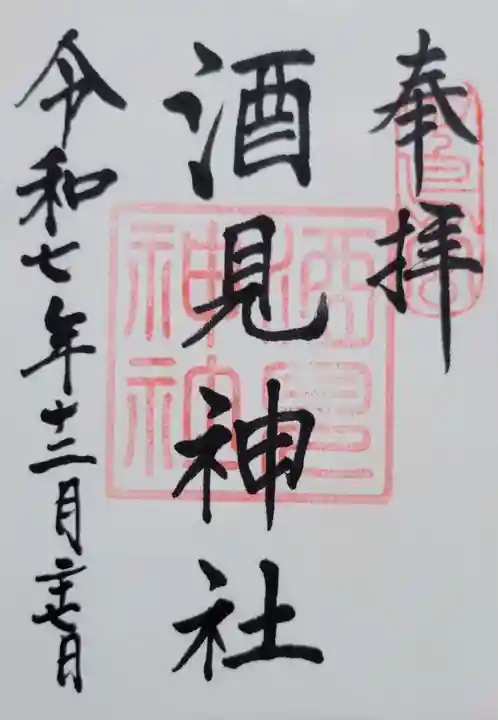 奉拝
酒見神社
酒見神社
令和七年十二月二十七日